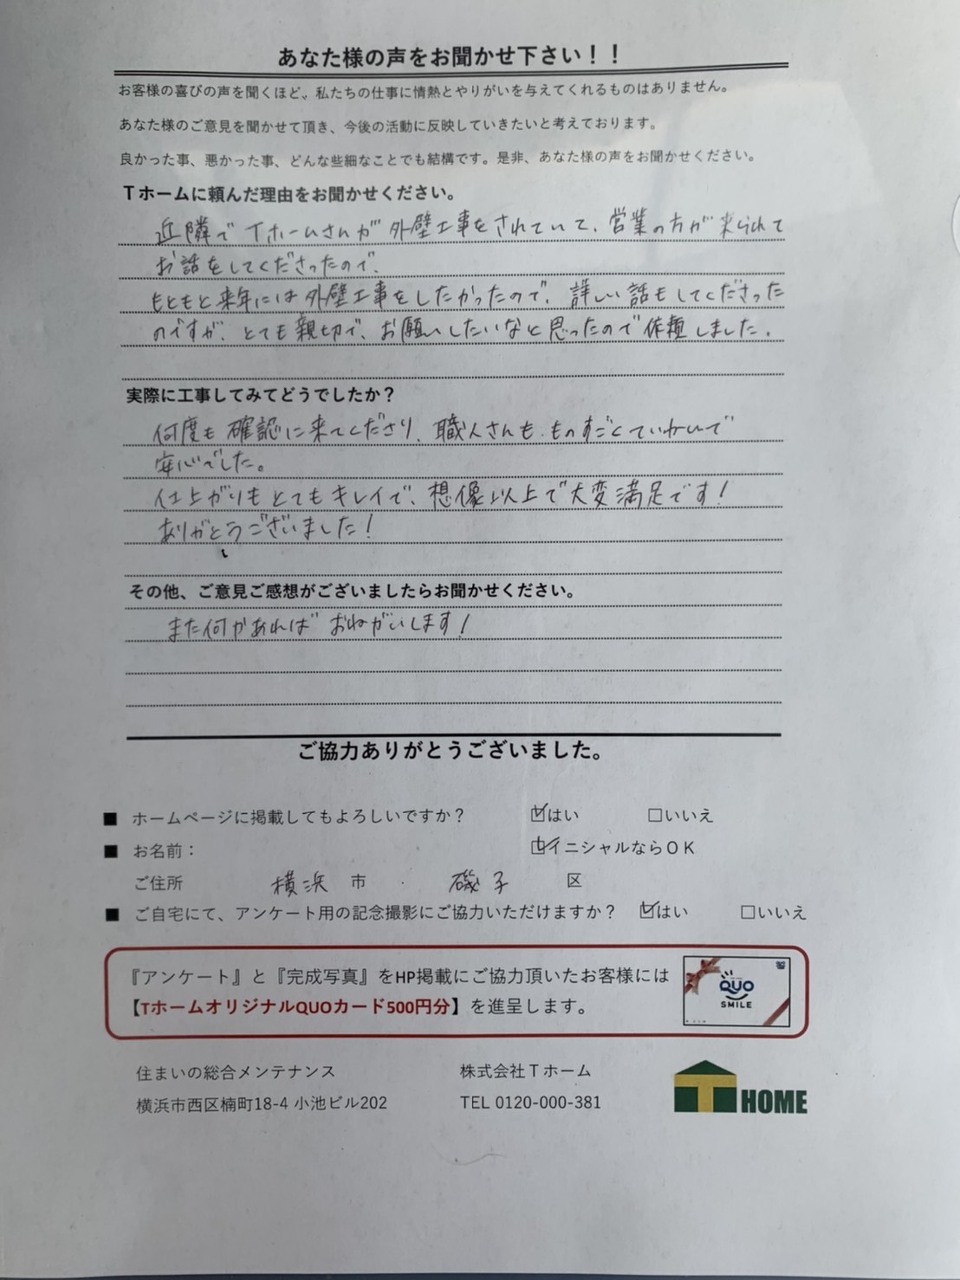 あなた様の声をお聞かせ下さい！！
お客様の喜びの声を聞くほど、私たちの仕事に情熱とやりがいを与えてくれるものはありません。
あなた様のご意見を聞かせて頂き、今後の活動に反映していきたいと考えております。
良かった事、悪かった事、どんな些細なことでも結構です。是非、あなた様の声をお聞かせください。
Tホームに頼んだ理由をお聞かせください。
近隣でTホームさんが外壁工事をされていて、営業の方が来られて
お話をしてくださったので、
もともと来年には外壁工事をしたかったので、詳しい話もしてくださった
のですが、とても親切で、お願いしたいなと思ったので依頼しました。
実際に工事してみてどうでしたか？
何度も確認に来てくださり、職人さんも、ものすごくていねいで
安心でした。
仕上がりもとてもキレイで、想像以上で大変満足です！
ありがとうございました！
その他、ご意見ご感想がございましたらお聞かせください。
また何かあれば おねがいします！
ご協力ありがとうございました。
■ ホームページに掲載してもよろしいですか？ ☑はい □いいえ
■ お名前： ☑イニシャルならOK
ご住所 横浜 市 磯子 区
■ ご自宅にて、アンケート用の記念撮影にご協力いただけますか？ ☑はい □いいえ
『アンケート』と『完成写真』をHP掲載にご協力頂いたお客様には
【TホームオリジナルQUOカード500円分】を進呈します。
QUO
SMILE
住まいの総合メンテナンス 株式会社Tホーム
横浜市西区楠町18-4 小池ビル202 TEL 0120-000-381
T HOME